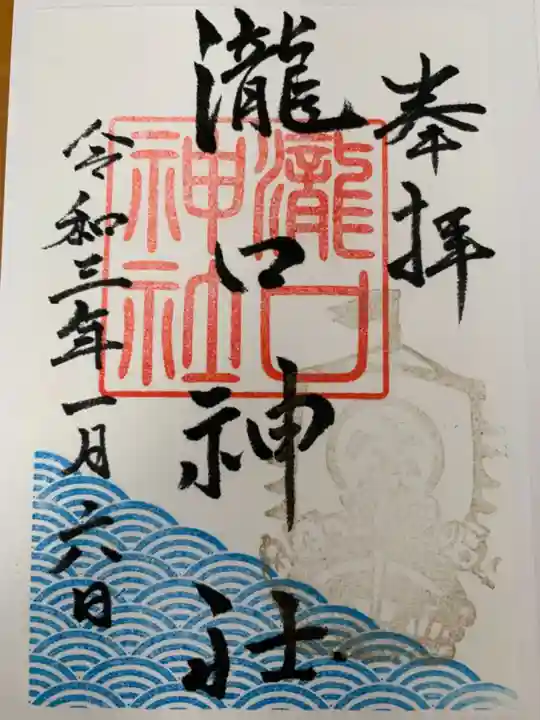 奉拝
瀧口神社
瀧口
神社
令和三年一月六日